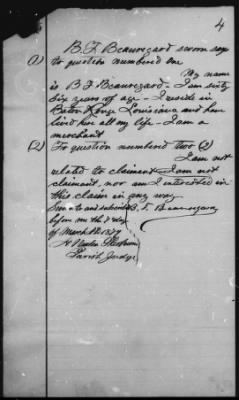 4
B. F. Beauregard sworn says
(1) to question numbered one
My name
is B F Beauregard - I am sixty
six years of age - I reside in
Baton Rouge Louisiana and have
lived here all my life - I am a
merchant
(2) To question numbered two (2)
I am not
related to claimant I am not
claimant, nor am I interested in
this claim in any way
Sworn to and subscribed B. F. Beauregard
before me this day
of March 1879
Parish Judge